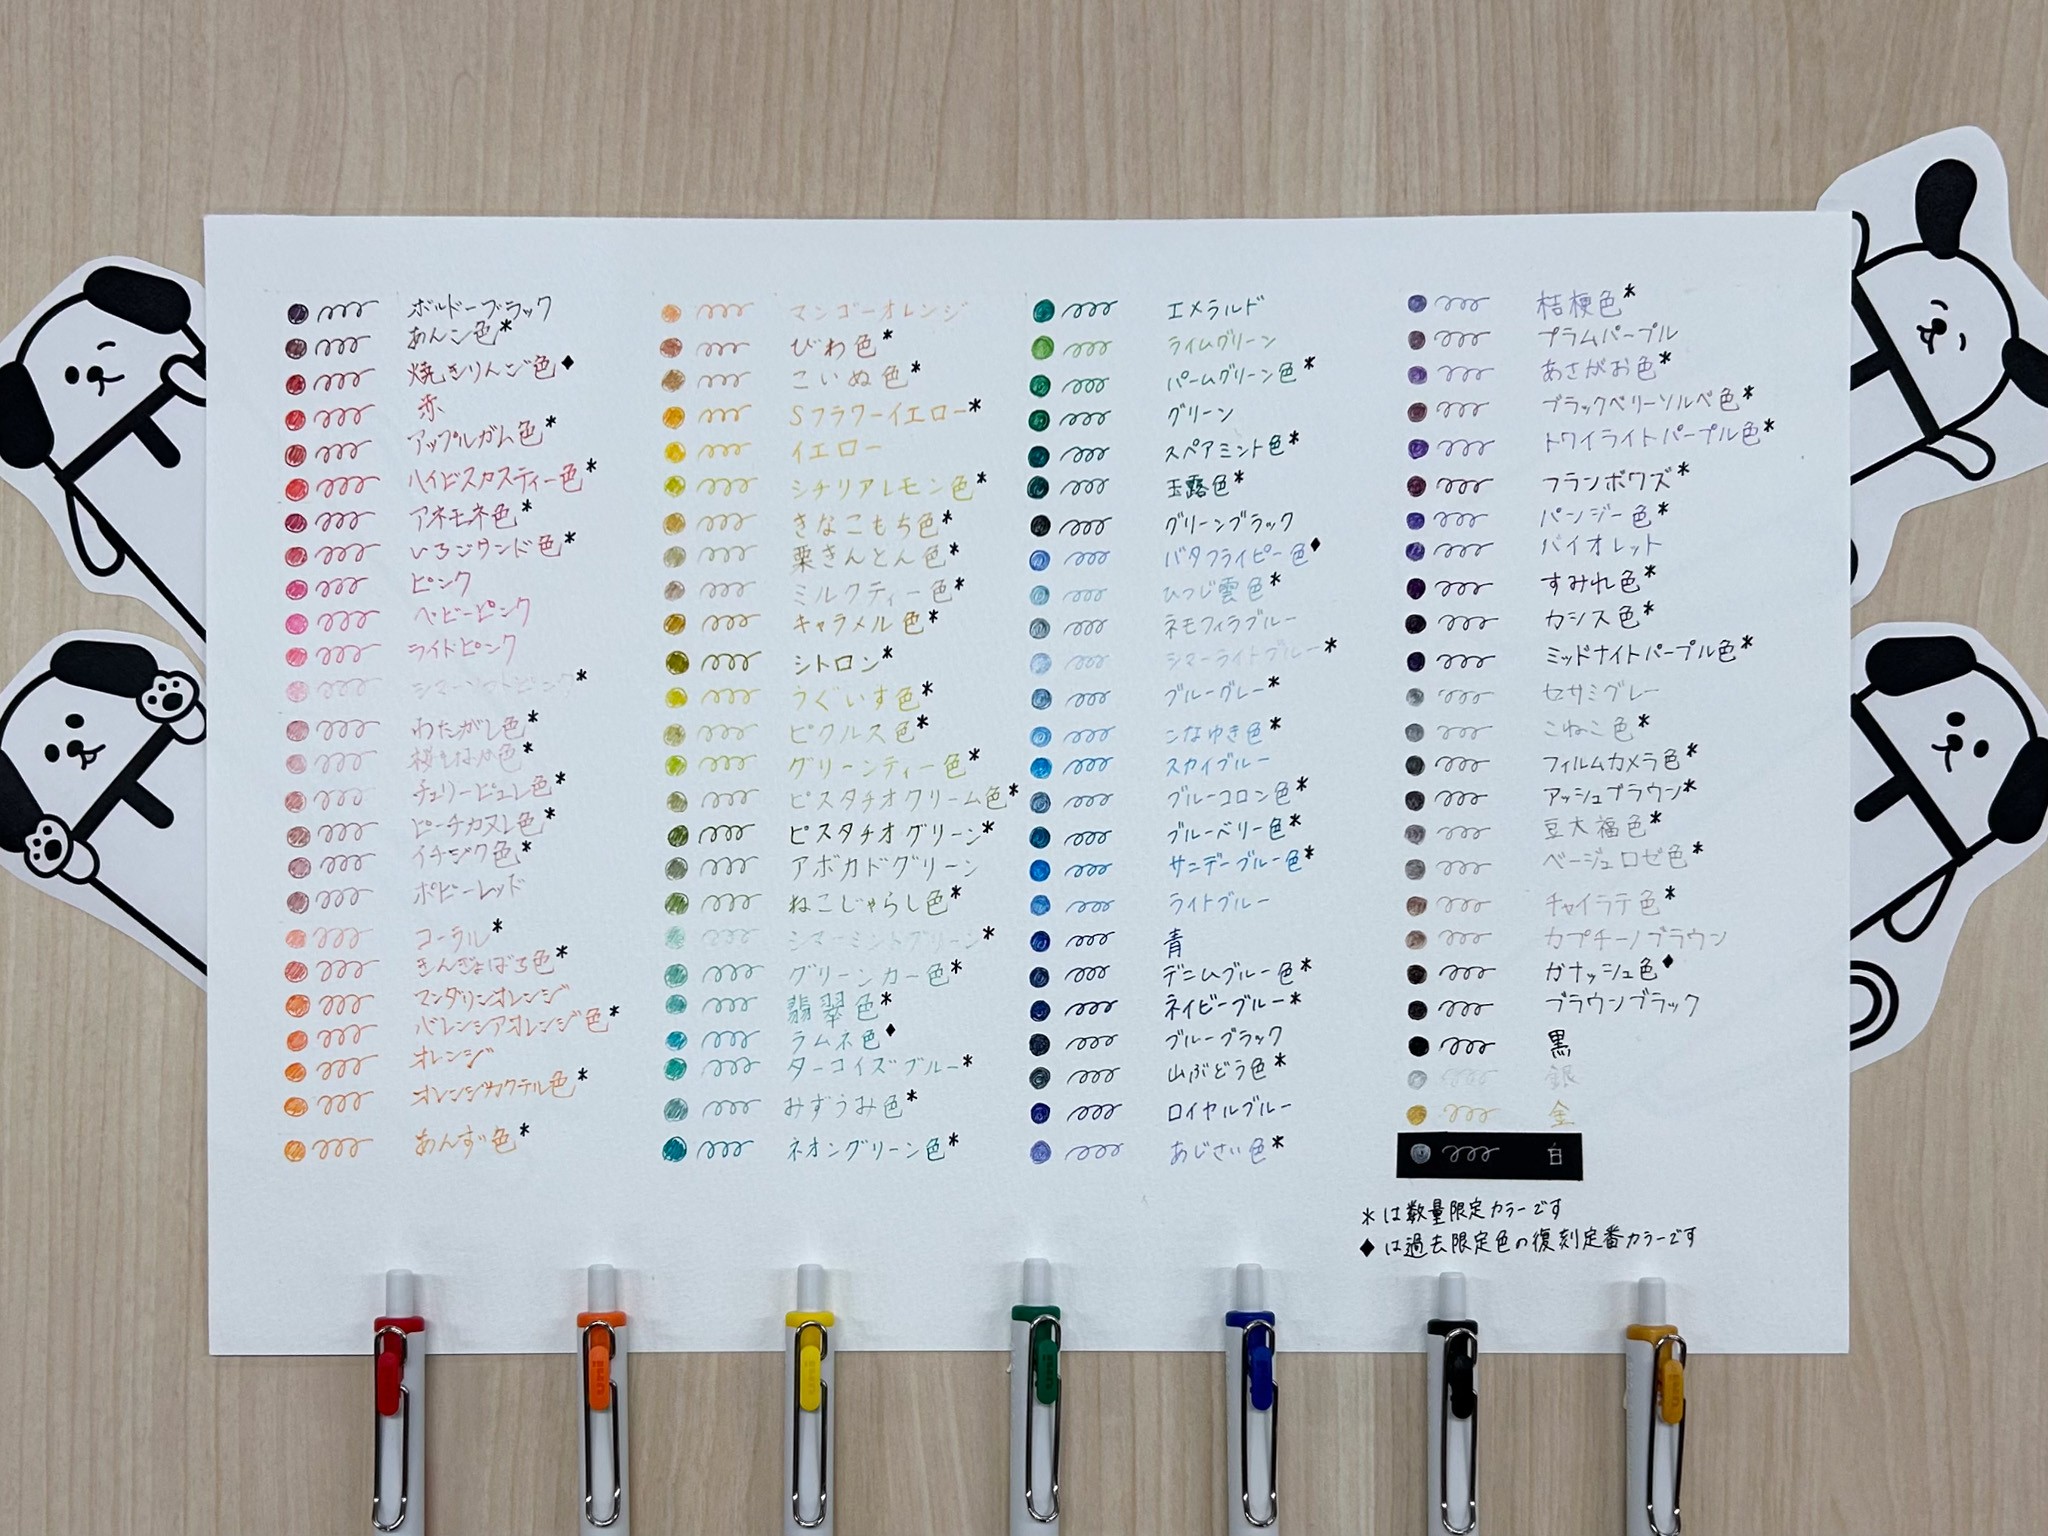 ボルドーブラック
あんこ色*
焼きりんご色♦
赤
アップルガム色*
ハイビスカスティー色*
アネモネ色*
いちごサンド色*
ピンク
ベビーピンク
ライトピンク
シマーソフトピンク*
わたがし色*
桜もなか色*
チェリーピュレ色*
ピーチカヌレ色*
イチジク色*
ポピーレッド
コーラル*
きんぎょばち色*
マンダリンオレンジ
バレンシアオレンジ色*
オレンジ
オレンジカクテル色*
あんず色*
マンゴーオレンジ
びわ色*
こいぬ色*
Sフラワーイエロー*
イエロー
シチリアレモン色*
きなこもち色*
栗きんとん色*
ミルクティー色*
キャラメル色*
シトロン*
うぐいす色*
ピクルス色*
グリーンティー色*
ピスタチオクリーム色*
ピスタチオグリーン*
アボカドグリーン
ねこじゃらし色*
シマーミントグリーン*
グリーンカー色*
翡翠色*
ラムネ色♦
ターコイズブルー*
みずうみ色*
ネオングリーン色*
エメラルド
ライムグリーン
パームグリーン色*
グリーン
スペアミント色*
玉露色*
グリーンブラック
バタフライピー色♦
ひつじ雲色*
ネモフィラブルー
シマーライトブルー*
ブルーグレー*
こなゆき色*
スカイブルー
ブルーコロン色*
ブルーベリー色*
サニーデーブルー色*
ライトブルー
青
デニムブルー色*
ネイビーブルー*
ブルーブラック
山ぶどう色*
ロイヤルブルー
あじさい色*
桔梗色*
プラムパープル
あさがお色*
ブラックベリーソルベ色*
トワイライトパープル色*
フランボワズ*
パンジー色*
バイオレット
すみれ色*
カシス色*
ミッドナイトパープル色*
セサミグレー
こねこ色*
フィルムカメラ色*
アッシュブラウン*
豆大福色*
ベージュロゼ色*
チャイラテ色*
カプチーノブラウン
ガナッシュ色♦
ブラウンブラック
黒
銀
金
白
*は数量限定カラーです
♦は過去限定色の復刻定番カラーです